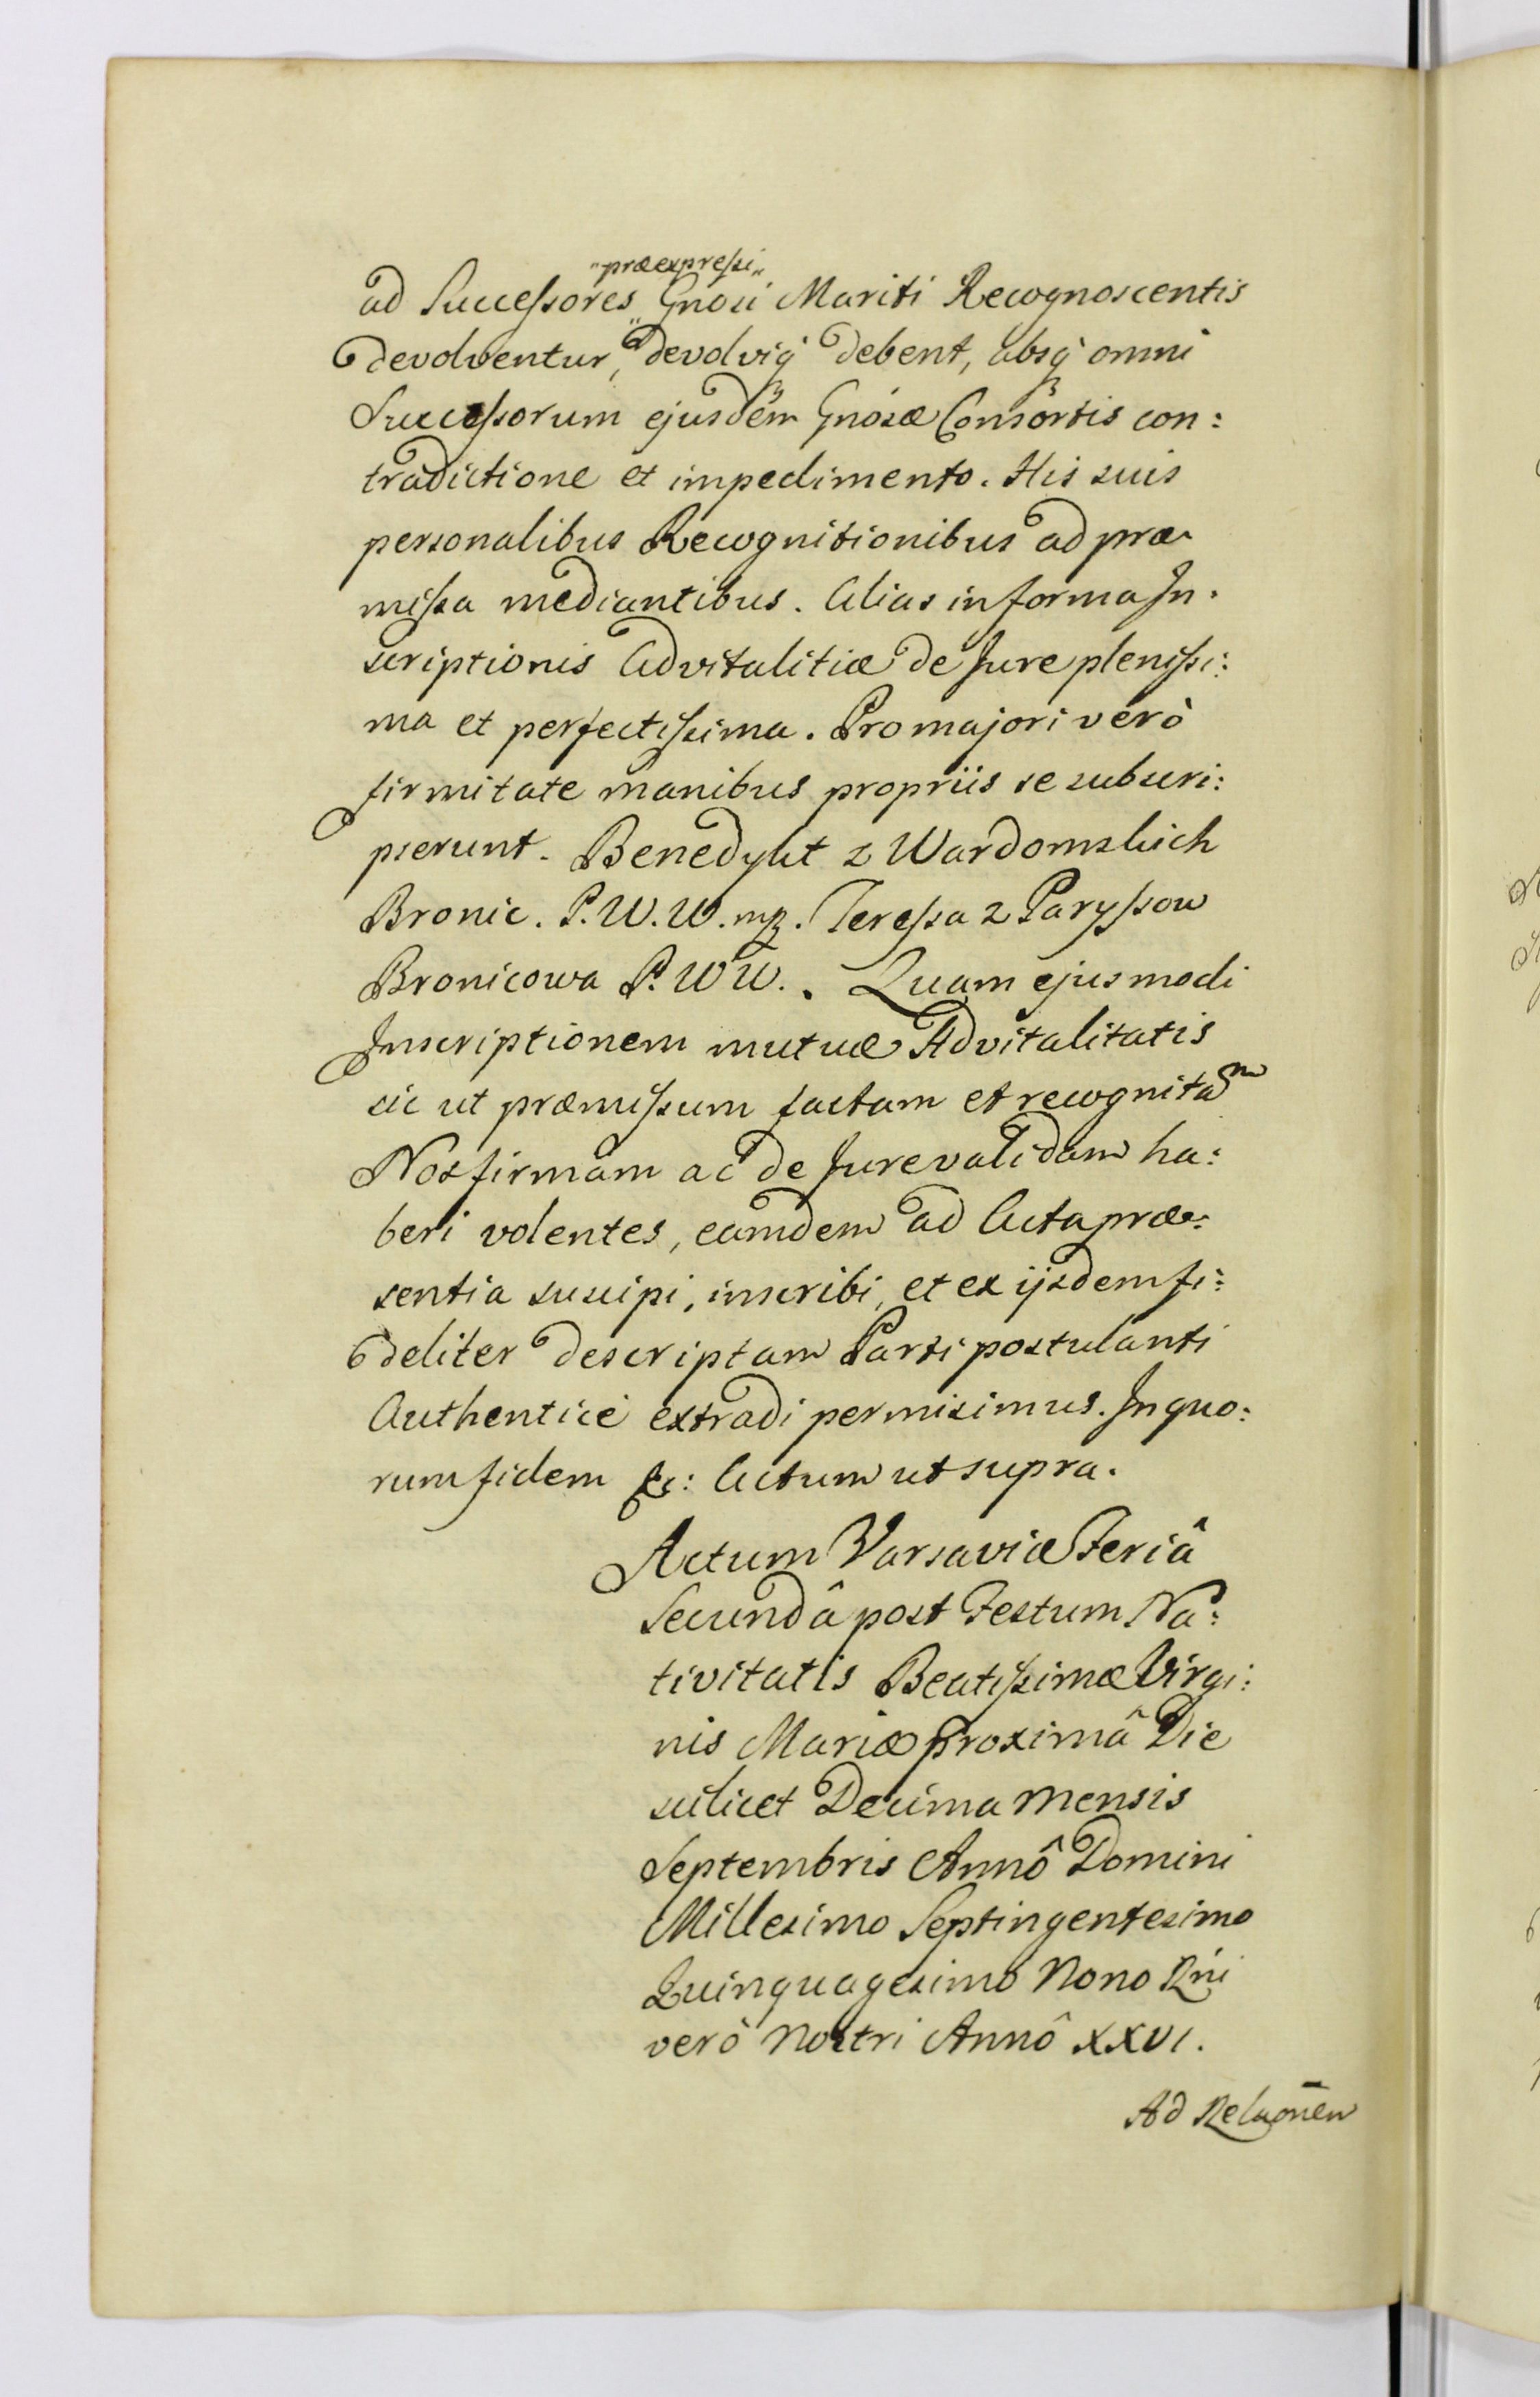 "præexpressi"
ad Successores Gnosi Mariti Recognoscentis
devolventur, devolviq̀ debent, absq̀ omni
Successorum ejusdem Gnosæ Consortis con:
tradictione et impedimento. His suis
personalibus Recognitionibus ad præ-
missa mediantibus. Alias in forma In-
scriptionis Advitalitiæ de Jure plenissi:
ma et perfectissima. Pro majori verò
firmitate manibus propriis se subscri:
pserunt. Benedykt z Wardomskich
Bronic. P. W. W. mp. Teressa z Paryssow
Bronicowa P. W W. . Quam ejusmodi
Inscriptionem mutuæ Advitalitatis
sic ut præmissum factam et recognitam
Nos firmam ac de Jure validam ha:
beri volentes, eamdem ad Acta præ:
sentia suscipi, inscribi, et ex ijsdem fi:
deliter descriptam Parti postulanti
Authenticè extradi permisimus. In quo:
rum fidem &c: Actum ut supra.
Actum Varsaviæ Feriâ
Secundâ post Festum Na:
tivitatis Beatissimæ Virgi:
nis Mariæ proximâ Die
scilicet Decima mensis
Septembris Annô Domini
Millesimo Septingentesimo
Quinquagesimo Nono Rńi
verò Nostri Annô XXVI.
Ad Relaōnēm